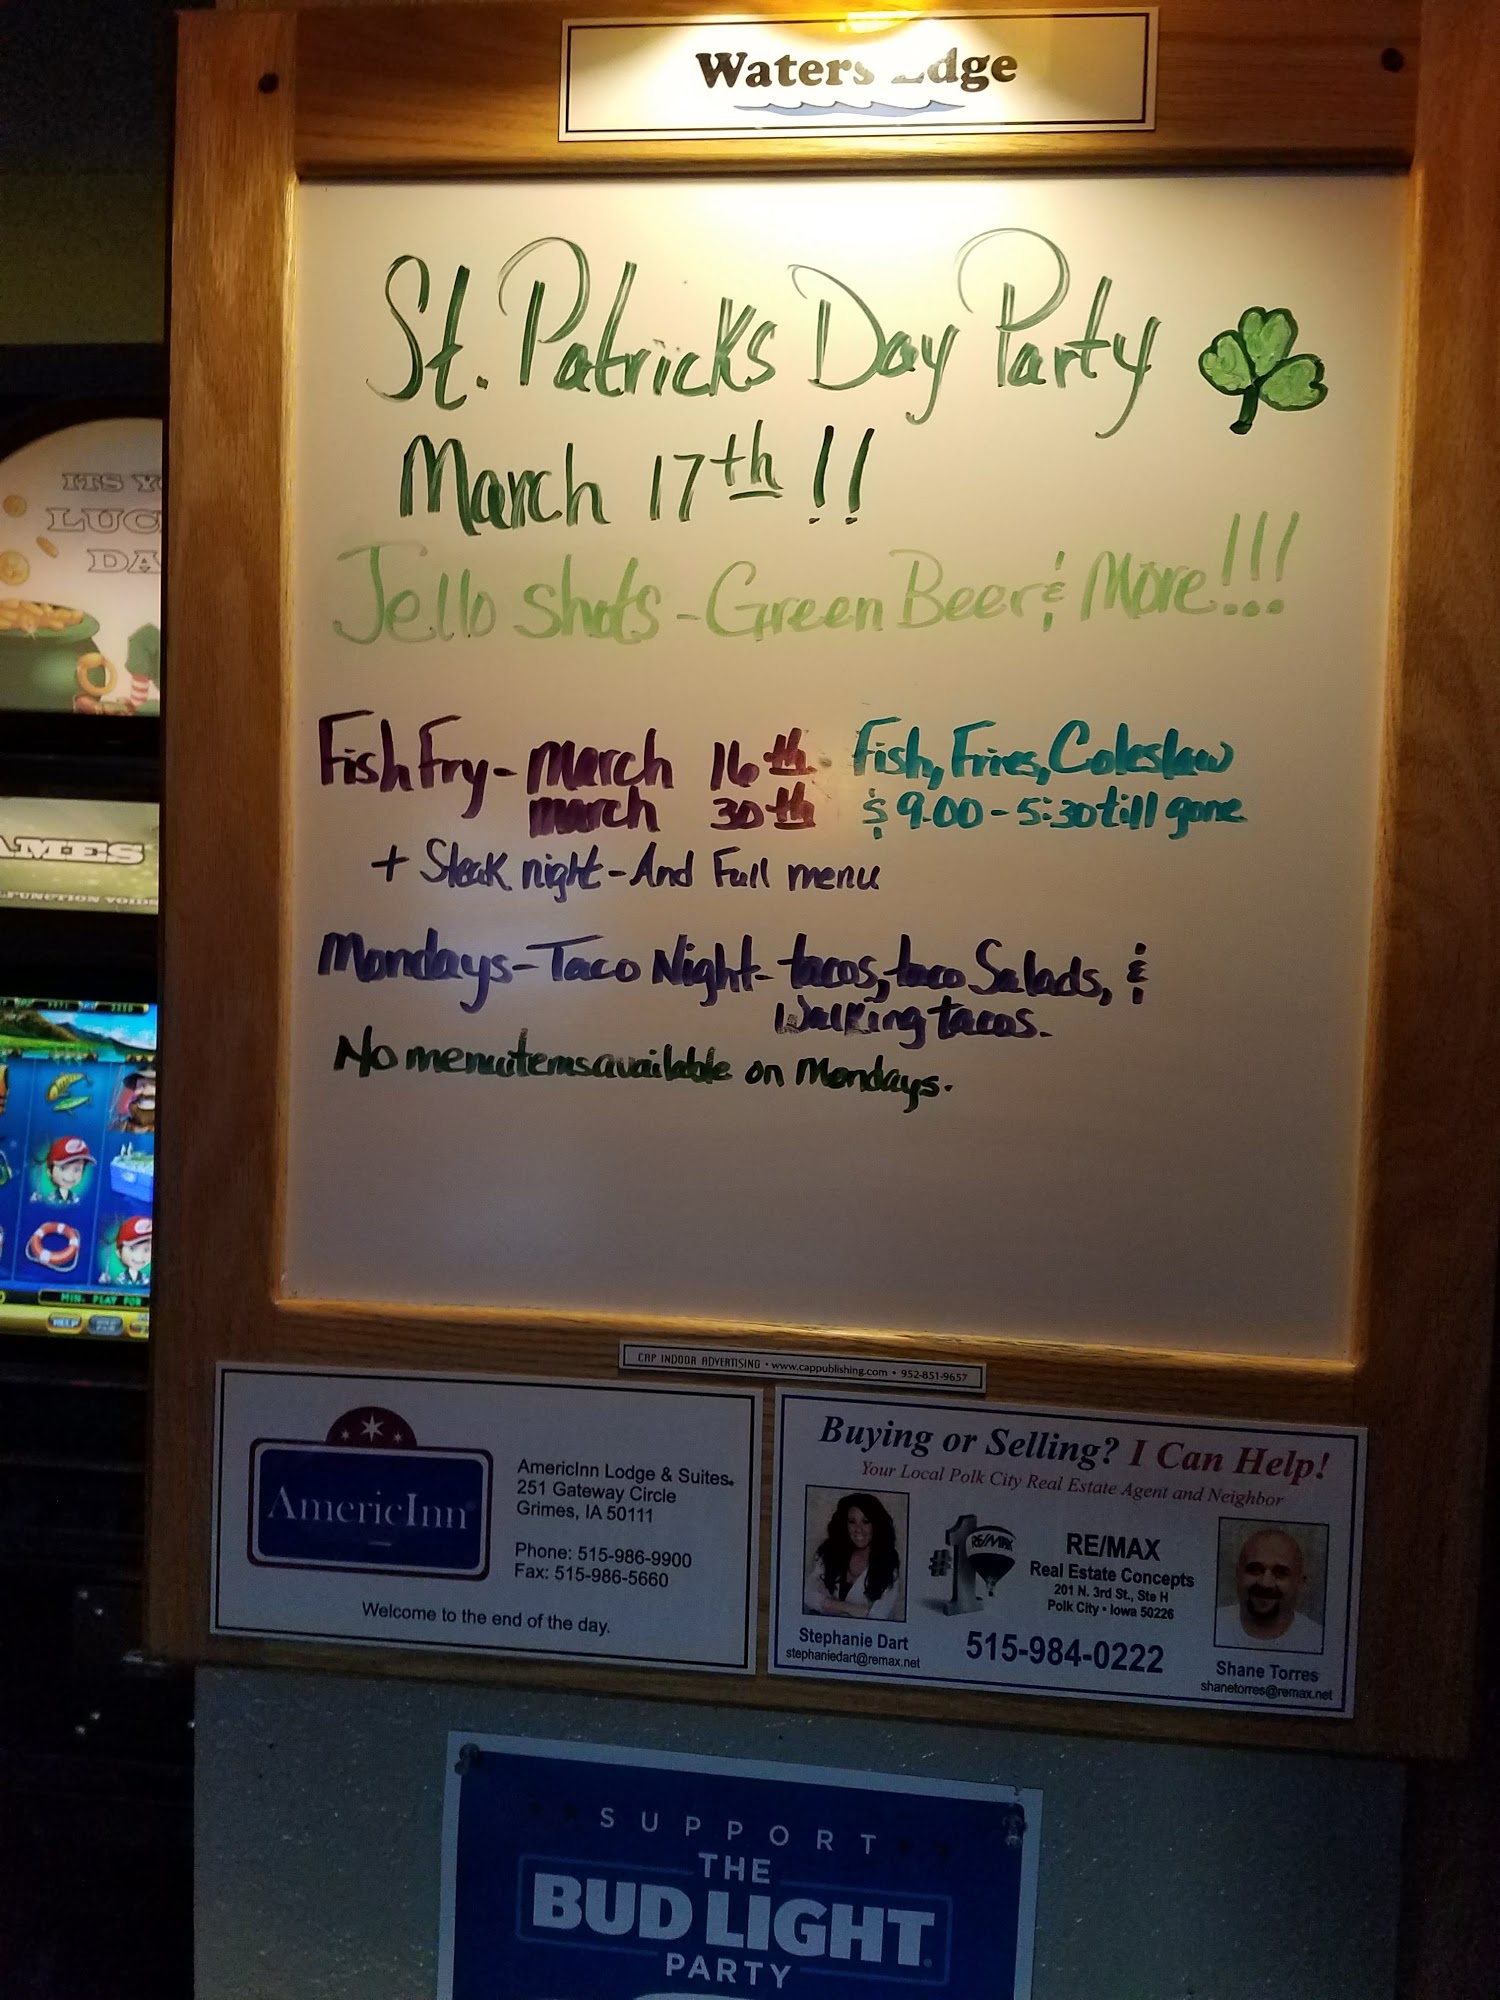 Waters Edge
St. Patricks Day Party
March 17th!!
Jello Shots - Green Beer & More!!!
Fish Fry - March 16th - Fish, Fries, Coleslaw
March 30th $9.00 - 5:30 till gone
+ Steak night - And Full menu
Mondays - Taco Night - tacos, taco Salads, &
Walking tacos.
No menu items available on Mondays.
CAP INDOOR ADVERTISING • www.cappublishing.com • 952-851-9657
AmericInn
AmericInn Lodge & Suites
251 Gateway Circle
Grimes, IA 50111
Phone: 515-986-9900
Fax: 515-986-5660
Welcome to the end of the day.
Buying or Selling? I Can Help!
Your Local Polk City Real Estate Agent and Neighbor
RE/MAX
RE/MAX
Real Estate Concepts
201 N. 3rd St., Ste H
Polk City • Iowa 50226
515-984-0222
Stephanie Dart
stephaniedart@remax.net
Shane Torres
shanetorres@remax.net
SUPPORT
THE
BUD LIGHT
PARTY
ITS Y
LUC
DA
AMES
MIN. PLAY FOR
HELP